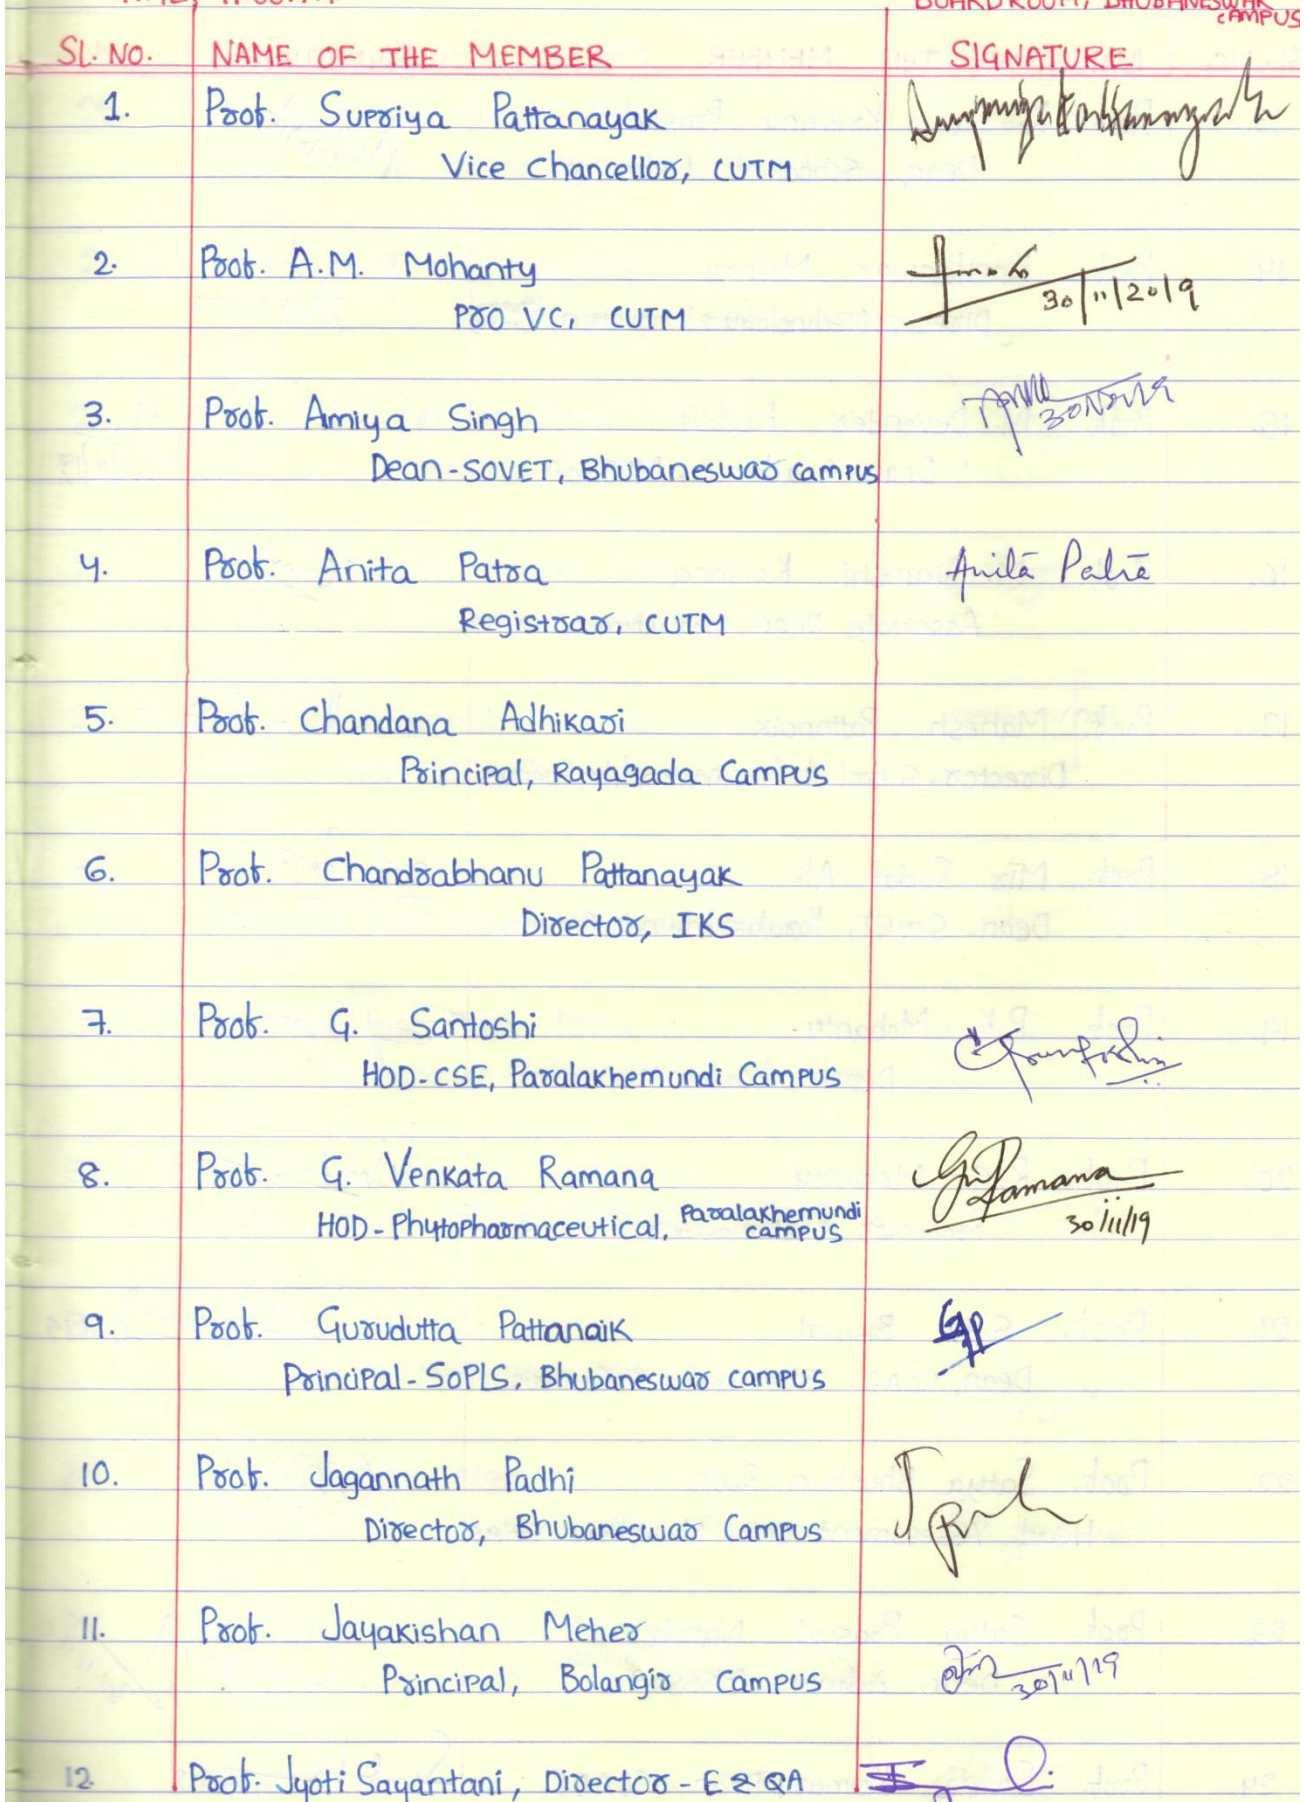 BOARD ROOM, BHUBANESWAR
CAMPUS
SL. NO. NAME OF THE MEMBER SIGNATURE
1. Prof. Supriya Pattanayak
Vice Chancellor, CUTM
2. Prof. A.M. Mohanty
Pro VC, CUTM
30/11/2019
3. Prof. Amiya Singh
Dean-SOVET, Bhubaneswar campus
4. Prof. Anita Patra Anita Patra
Registrar, CUTM
5. Prof. Chandana Adhikari
Principal, Rayagada Campus
6. Prof. Chandrabhanu Pattanayak
Director, IKS
7. Prof. G. Santoshi
HOD-CSE, Paralakhemundi Campus
8. Prof. G. Venkata Ramana
HOD-Phytopharmaceutical, Paralakhemundi campus
30/11/19
9. Prof. Gurudutta Pattanaik
Principal-SoPLS, Bhubaneswar campus
10. Prof. Jagannath Padhi
Director, Bhubaneswar Campus
11. Prof. Jayakishan Meher
Principal, Bolangir Campus 30/11/19
12. Prof. Jyoti Sayantani, Director-E & QA